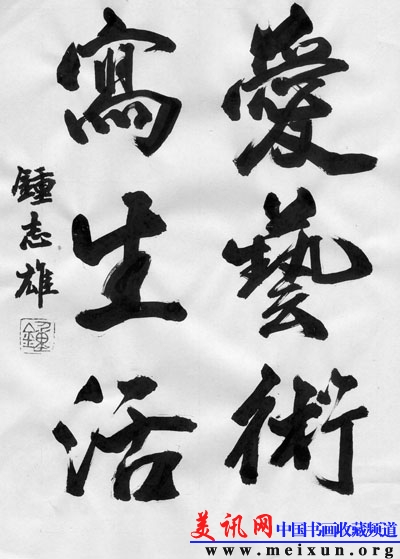 愛藝術
寫生活
鍾志雄
鍾
美讯网中国书画收藏频道
www.meixun.org